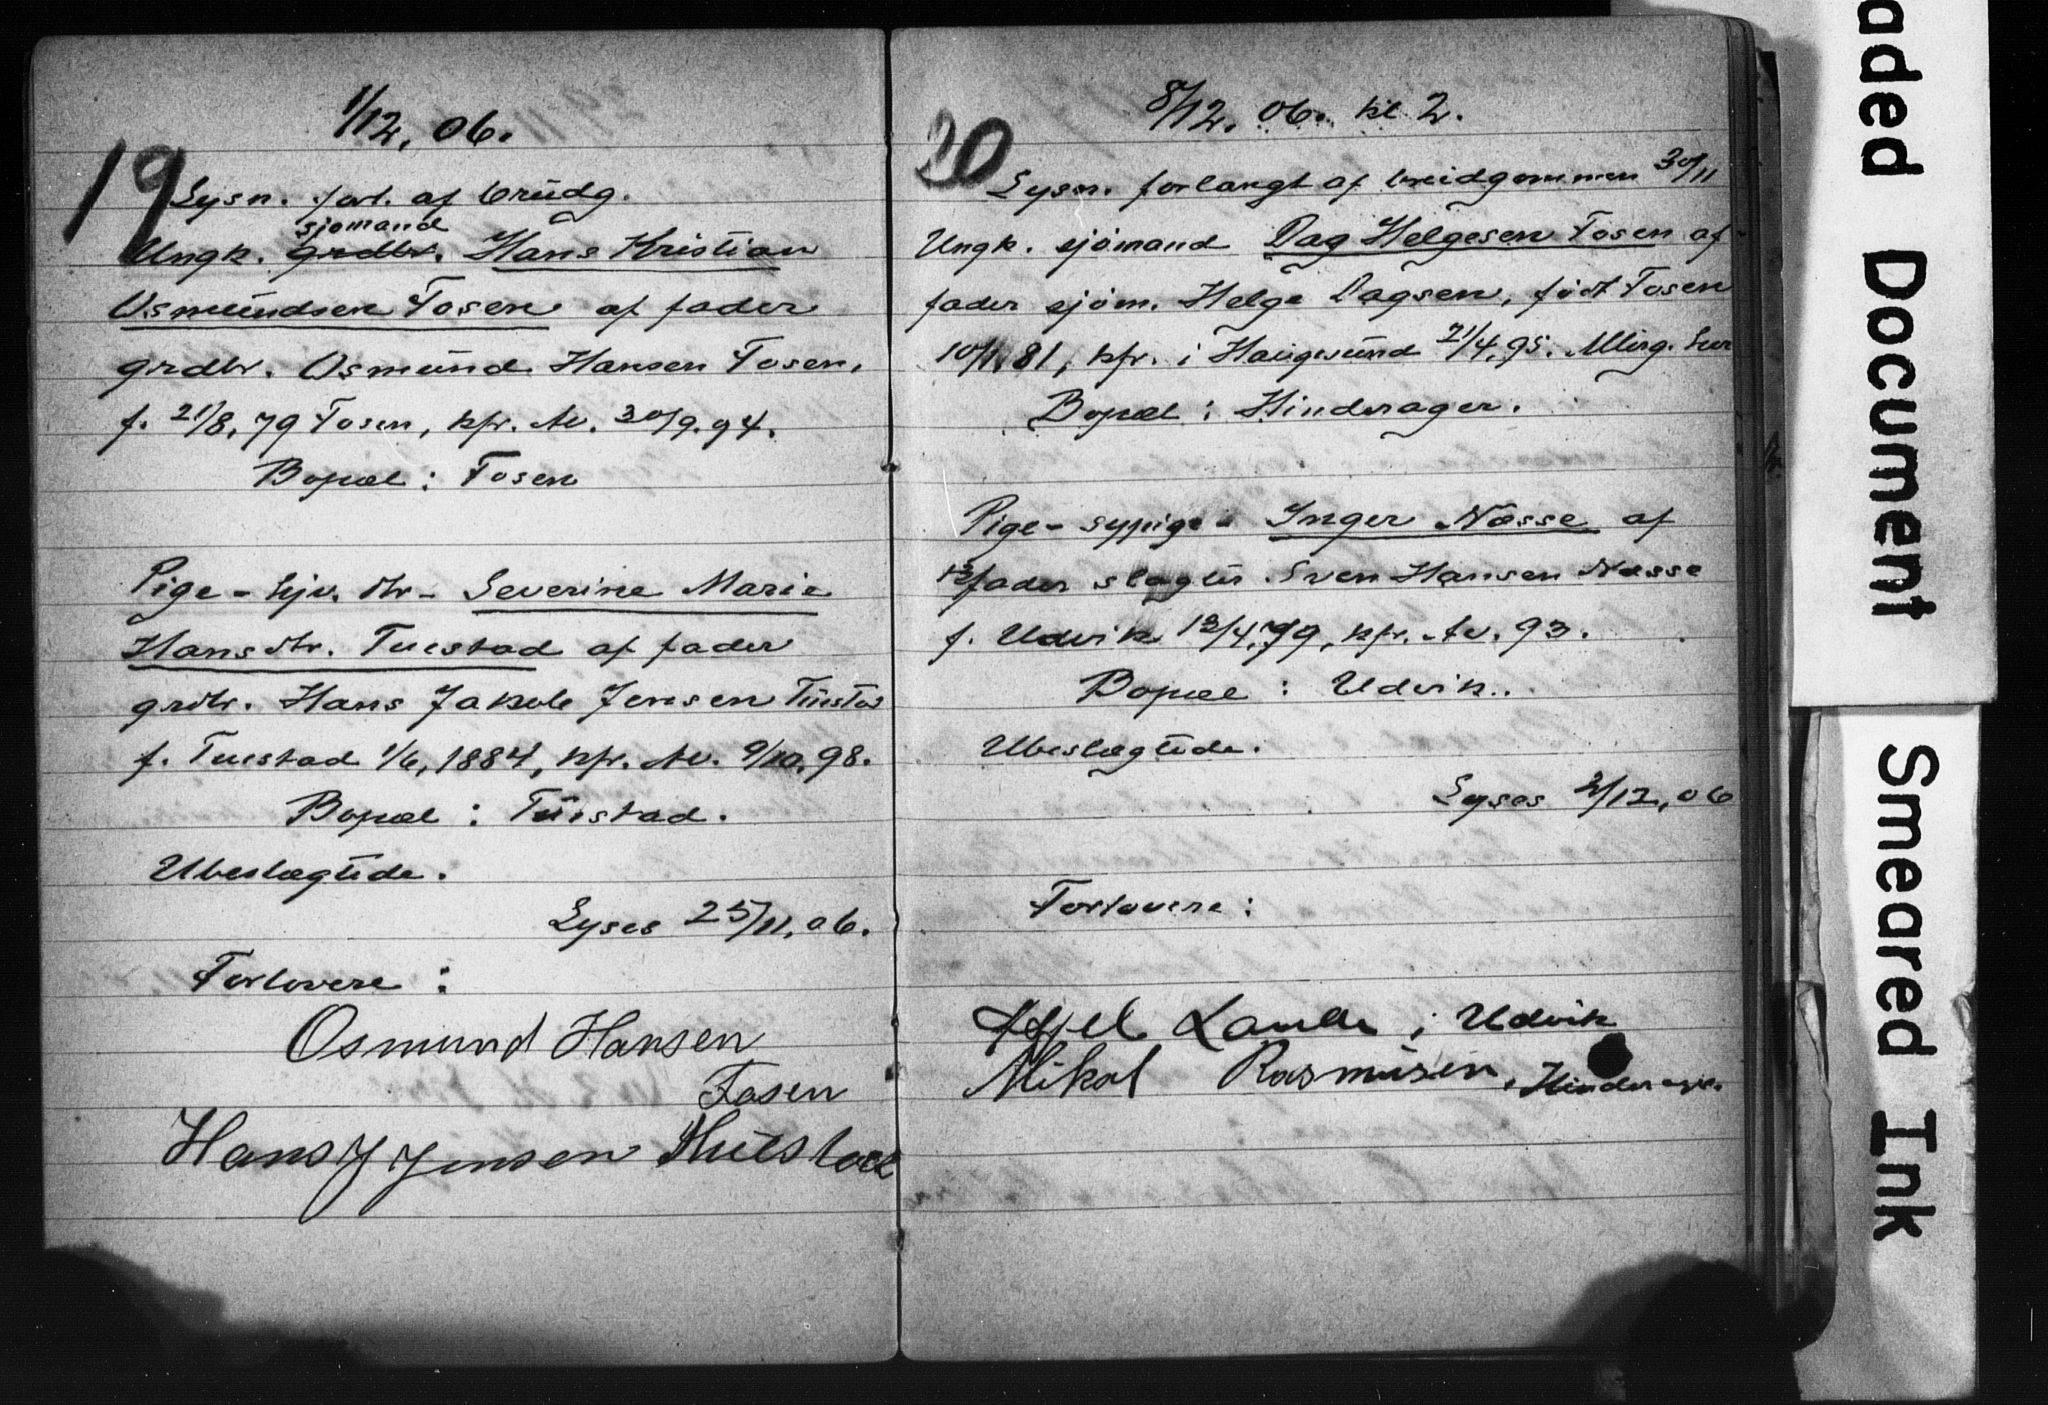 1/12, 06.
19
Lysn. forl. af brudg.
sjømand
Ungk. grdbr. Hans Kristian
Osmundsen Tosen af fader
grdbr. Osmund Hansen Tosen,
f. 21/8, 79 Tosen, kfr. Av. 30/9. 94.
Bopæl : Tosen
Pige - hjv. dtr - Severine Marie
Hansdtr. Tuestad af fader
grdbr. Hans Jakob Jensen Tuestad
f. Tuestad 1/6, 1884, kfr. Av. 9/10, 98.
Bopæl : Tuestad.
Ubeslægtede.
Lyses 25/11, 06.
Forlovere :
Osmund Hansen
Tosen
Hans J Jensen
8/12, 06. kl 2.
20
Lysn. forlangt af breidgommen 30/11
Ungk. sjømand Dag Helgesen Tosen af
fader sjøm. Helge Dagsen, født Tosen
10/1, 81, kfr. i Haugesund 21/4, 95.
Bopæl : Hinderager.
Pige - sypige - Inger Næsse af
fader slagter Sven Hansen Næsse
f. Udvik 12/4, 79, kfr. Av. 93.
Bopæl : Udvik.
Ubeslægtede.
Lyses 2/12, 06
Forlovere :
i Udvik
Mikal Rasmusen, Hinderager.
aded Document
Smeared Ink